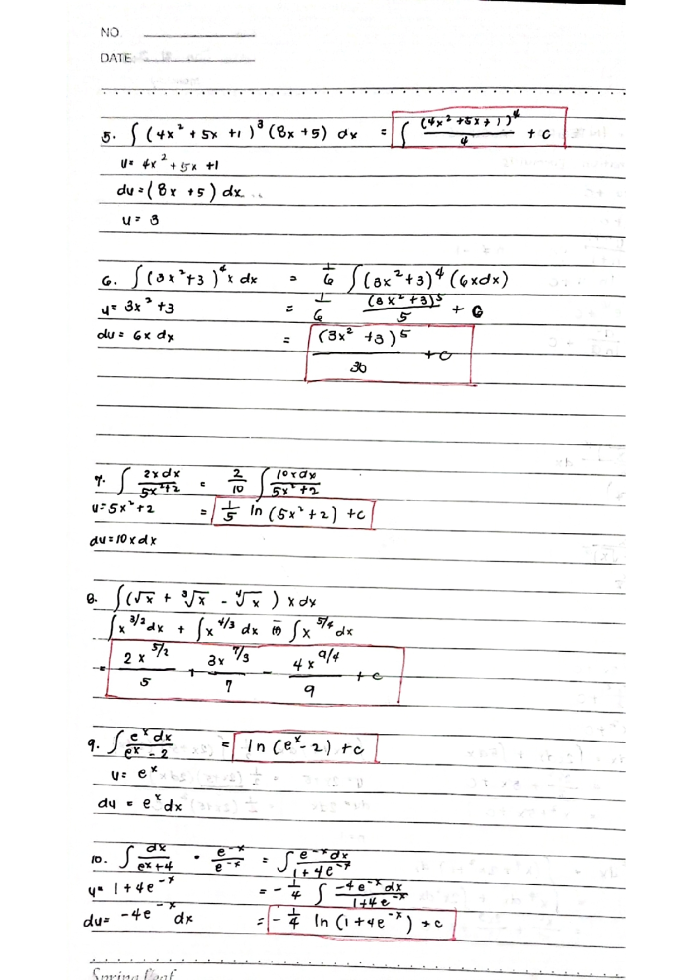 NO.
DATE
5. ∫ (4x² + 5x + 1)³ (8x + 5) dx = ∫ (4x² + 5x + 1)⁴ / 4 + C
u = 4x² + 5x + 1
du = (8x + 5) dx
u = 3
6. ∫ (3x² + 3)⁴ x dx = 1/6 ∫ (3x² + 3)⁴ (6xdx)
u = 3x² + 3 = 1/6 (3x² + 3)⁵ / 5 + C
du = 6x dx = (3x² + 3)⁵ / 30 + C
7. ∫ 2x dx / 5x² + 2 = 2/10 ∫ 10x dx / 5x² + 2
u = 5x² + 2 = 1/5 ln (5x² + 2) + C
du = 10x dx
8. ∫ (√x + ³√x - ⁴√x) x dx
∫ x^3/2 dx + ∫ x^4/3 dx - ∫ x^5/4 dx
= 2x^5/2 / 5 + 3x^7/3 / 7 - 4x^9/4 / 9 + C
9. ∫ eˣ dx / eˣ - 2 = ln (eˣ - 2) + C
u = eˣ
du = eˣ dx
10. ∫ dx / eˣ + 4 · e⁻ˣ / e⁻ˣ = ∫ e⁻ˣ dx / 1 + 4e⁻ˣ
u = 1 + 4e⁻ˣ = - 1/4 ∫ -4e⁻ˣ dx / 1 + 4e⁻ˣ
du = -4e⁻ˣ dx = - 1/4 ln (1 + 4e⁻ˣ) + C
Spring Leaf